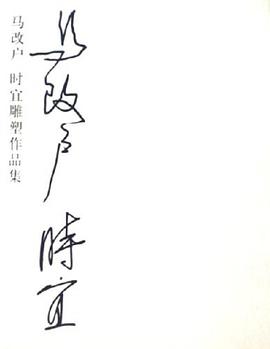 马改户 时宜雕塑作品集
马改户 時宜